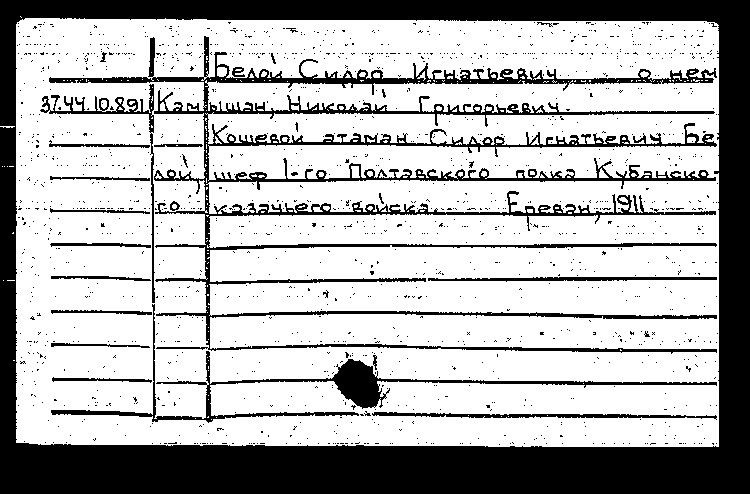 Белой, Сидор Игнатьевич, о нем
37.44.10.891. Камышан, Николай Григорьевич.
Кошевой атаман Сидор Игнатьевич Бе-
лой, шеф 1-го Полтавского полка Кубанско-
го казачьего войска. Ереван, 1911